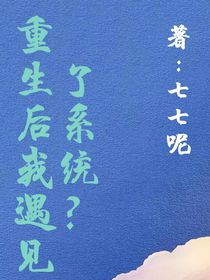 重生后我遇见
了系统？
著：七七呢